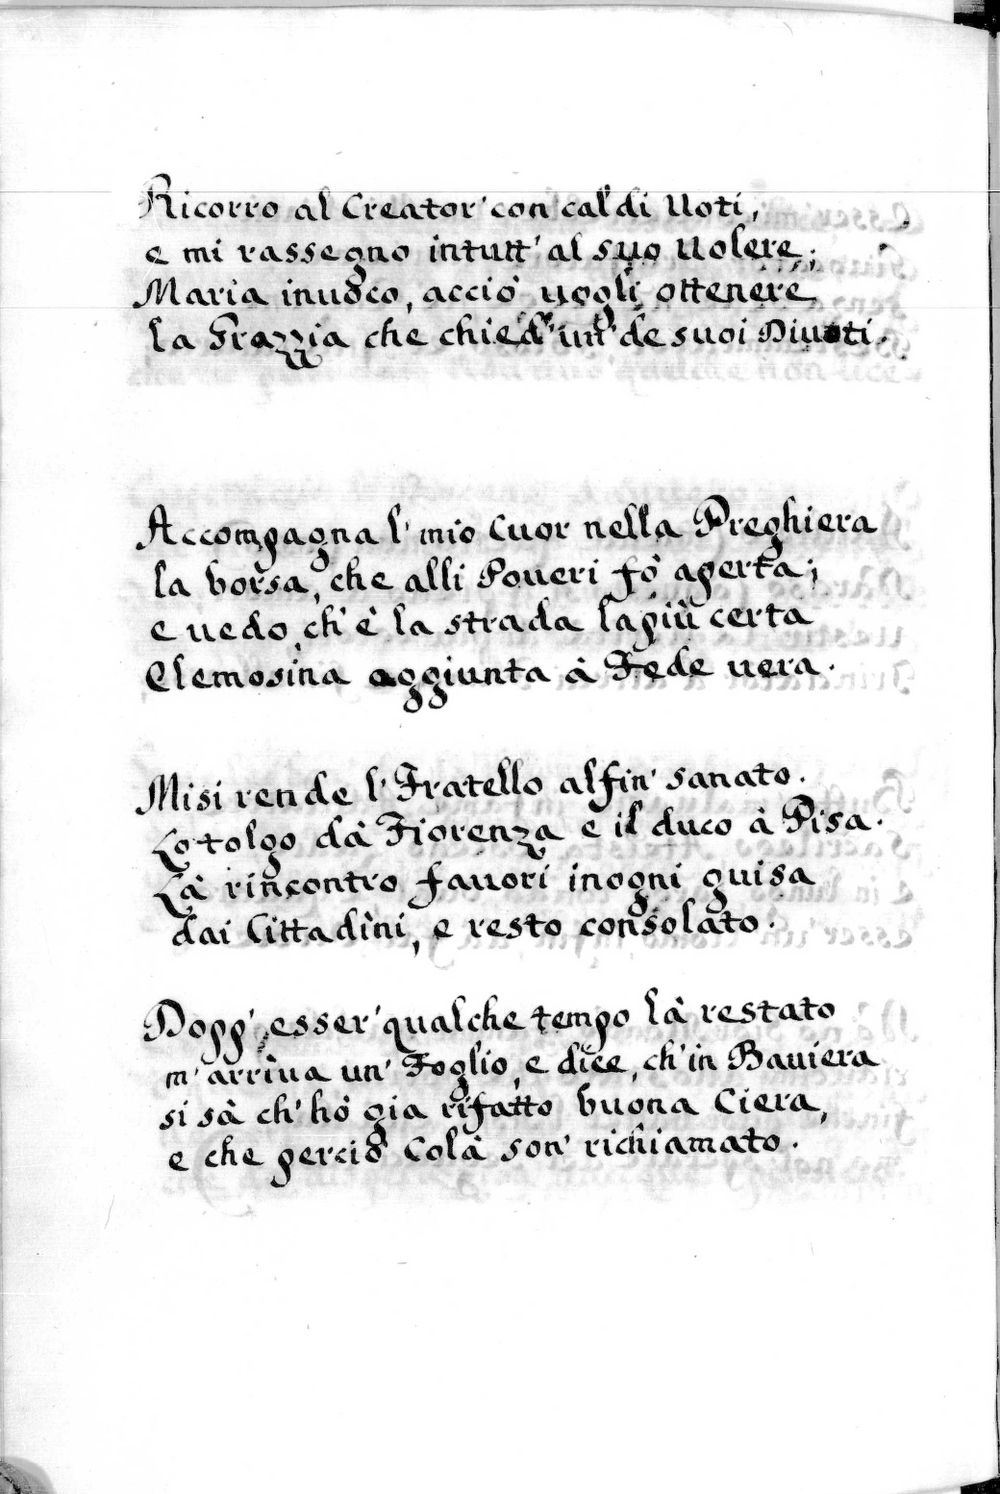 Ricorro al Creator' con caldi Uoti,
e mi rassegno in tutt' al suo Uolere;
Maria inuoco, acciò uogli ottenere
la Grazzia che chied' un' de suoi Diuoti.
Accompagna l' mio Cuor nella Preghiera
la borsa, che alli Poueri fò aperta;
e uedo, ch' è la strada la più certa
Elemosina aggiunta à Fede uera.
Mi si rende l' Fratello alfin' sanato.
Lo tolgo dà Fiorenza e il duco à Pisa.
Là rincontro fauori in ogni guisa
dai Cittadini, e resto consolato.
Dopp' esser' qualche tempo là restato
m' arriua un' Foglio, e dice, ch' in Bauiera
si sà ch' hò gia rifatto buona Ciera,
e che perciò Colà son' richiamato.